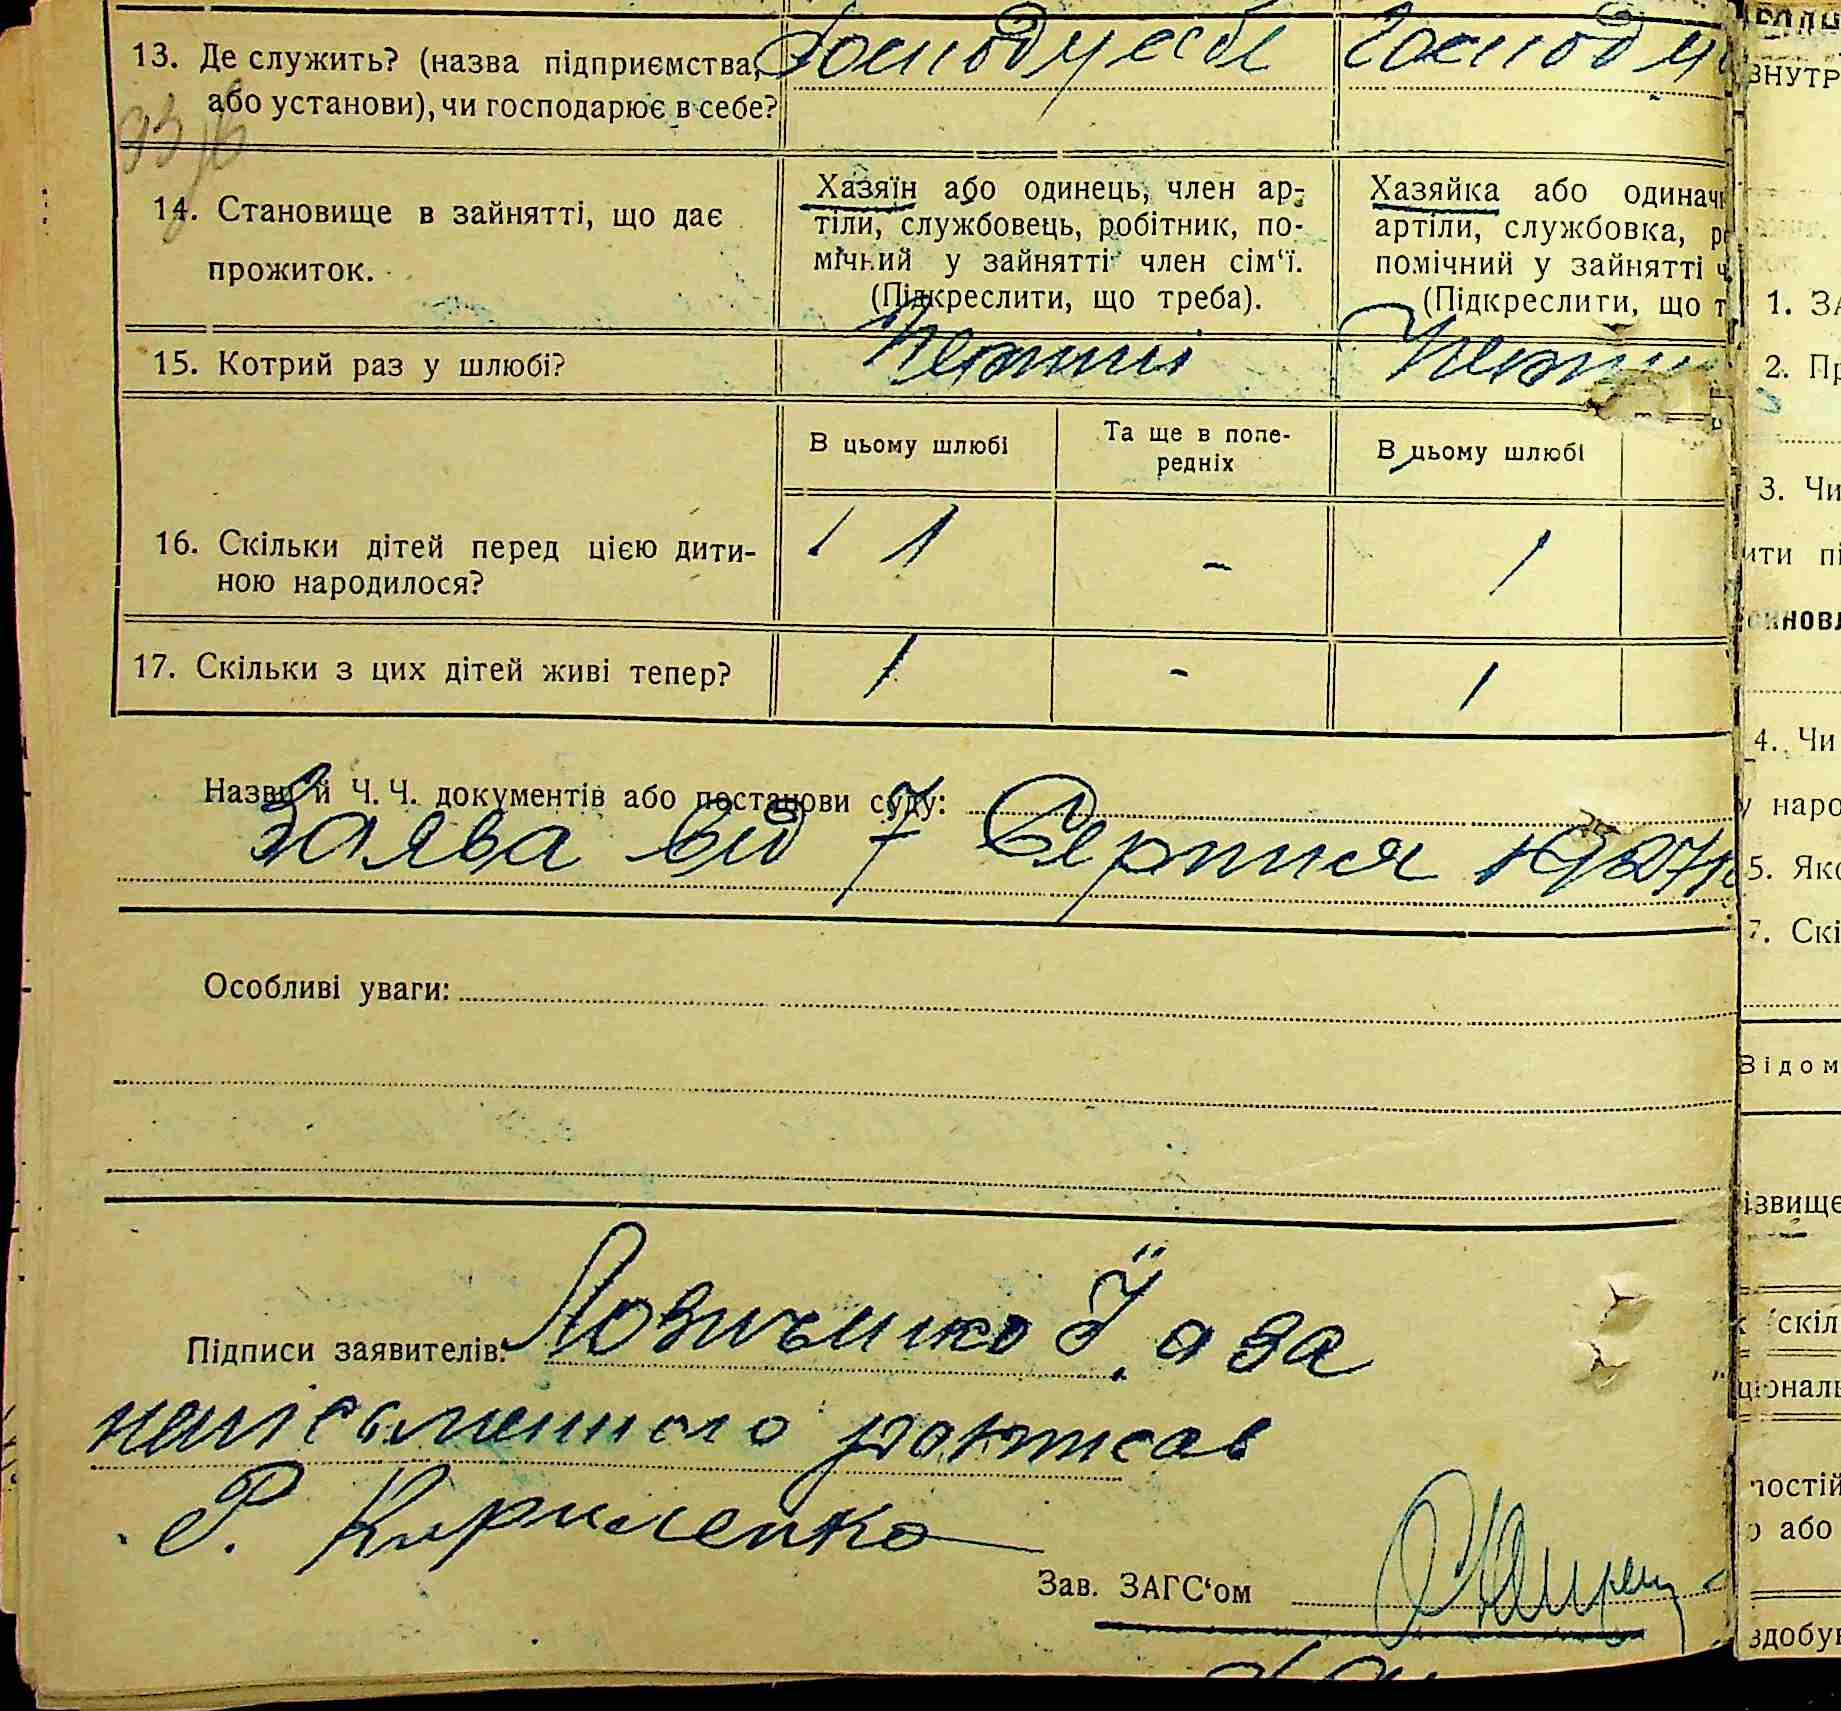 13. Де служить? (назва підприємства,
або установи), чи господарює в себе?
14. Становище в зайнятті, що дає
прожиток.
Хазяїн або одинець, член ар-
тіли, службовець, робітник, по-
мічний у зайнятті член сім'ї.
(Підкреслити, що треба).
Хазяйка або одинач
артіли, службовка, р
помічний у зайнятті ч
(Підкреслити, що т
15. Котрий раз у шлюбі?
Перший
В цьому шлюбі
Та ще в попе-
редніх
В цьому шлюбі
16. Скільки дітей перед цією дити-
ною народилося?
1 - 1
17. Скільки з цих дітей живі тепер?
1 - 1
Назви й Ч. Ч. документів або постанови суду:
Заява від 7 Серпня 1927р
Особливі уваги:
Підписи заявителів:
а за
неписьменного росписав
Р. Кириленко
Зав. ЗАГС'ом
ВНУТР
1. ЗА
2. Пр
3. Чи
ити пі
4. Чи
у наро
5. Яко
7. Скі
Відом
ізвище
скіл
ціональ
постій
о або
здобув